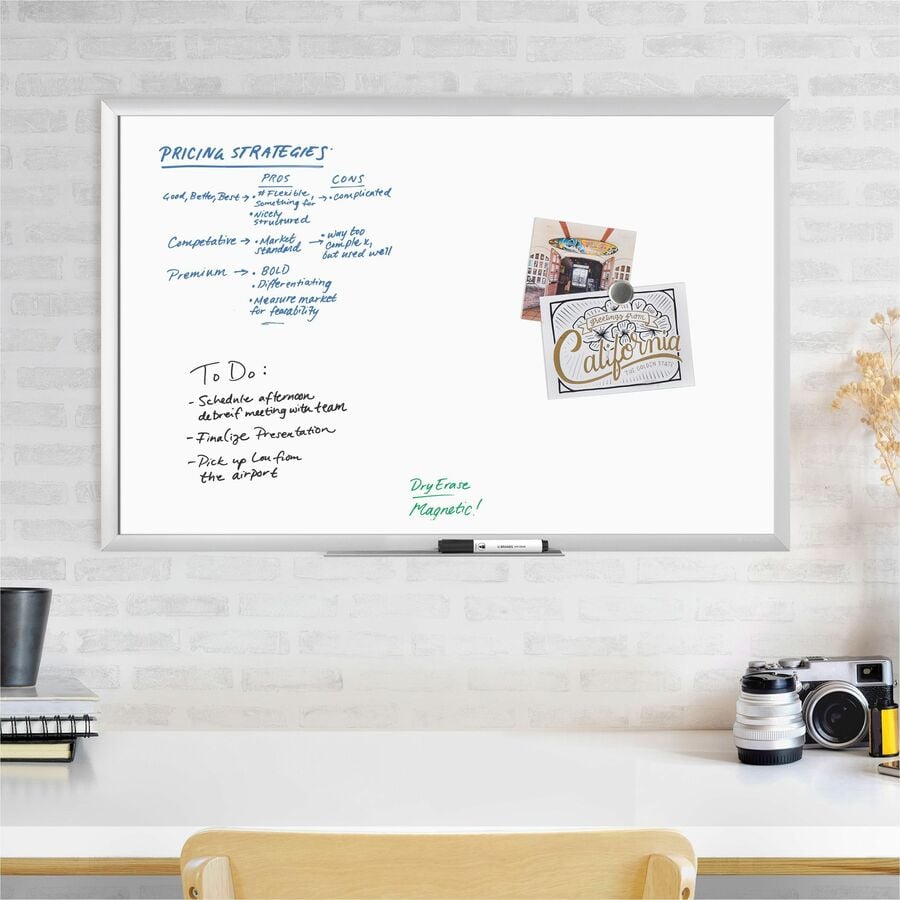 PRICING STRATEGIES
PROS CONS
Good, Better, Best → • # Flexible, → • Complicated
something for
• Nicely
strutured
Competative → • Market → • way too
standard complex,
but used well
Premium → • BOLD
• Differentiating
• Measure market
for feasability
To Do:
- Schedule afternoon
debreif meeting with team
- Finalize Presentation
- Pick up Lou from
the airport
Dry Erase
Magnetic!
greetings from
California
THE GOLDEN STATE
U BRANDS